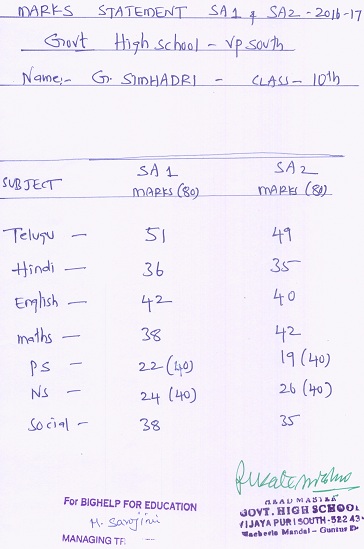 MARKS STATEMENT SA1 & SA2 - 2016-17
Govt High school - VP South
Name:- G. SIMHADRI - CLASS - 10th
SUBJECT SA 1 MARKS (80) SA 2 MARKS (80)
Telugu - 51 49
Hindi - 36 35
English - 42 40
maths - 38 42
PS - 22 (40) 19 (40)
NS - 24 (40) 26 (40)
Social - 38 35
For BIGHELP FOR EDUCATION
M. Sarojini
MANAGING TR
HEAD MASTER
GOVT. HIGH SCHOOL
VIJAYA PURI SOUTH-522 43
Macherla Mandal - Guntur